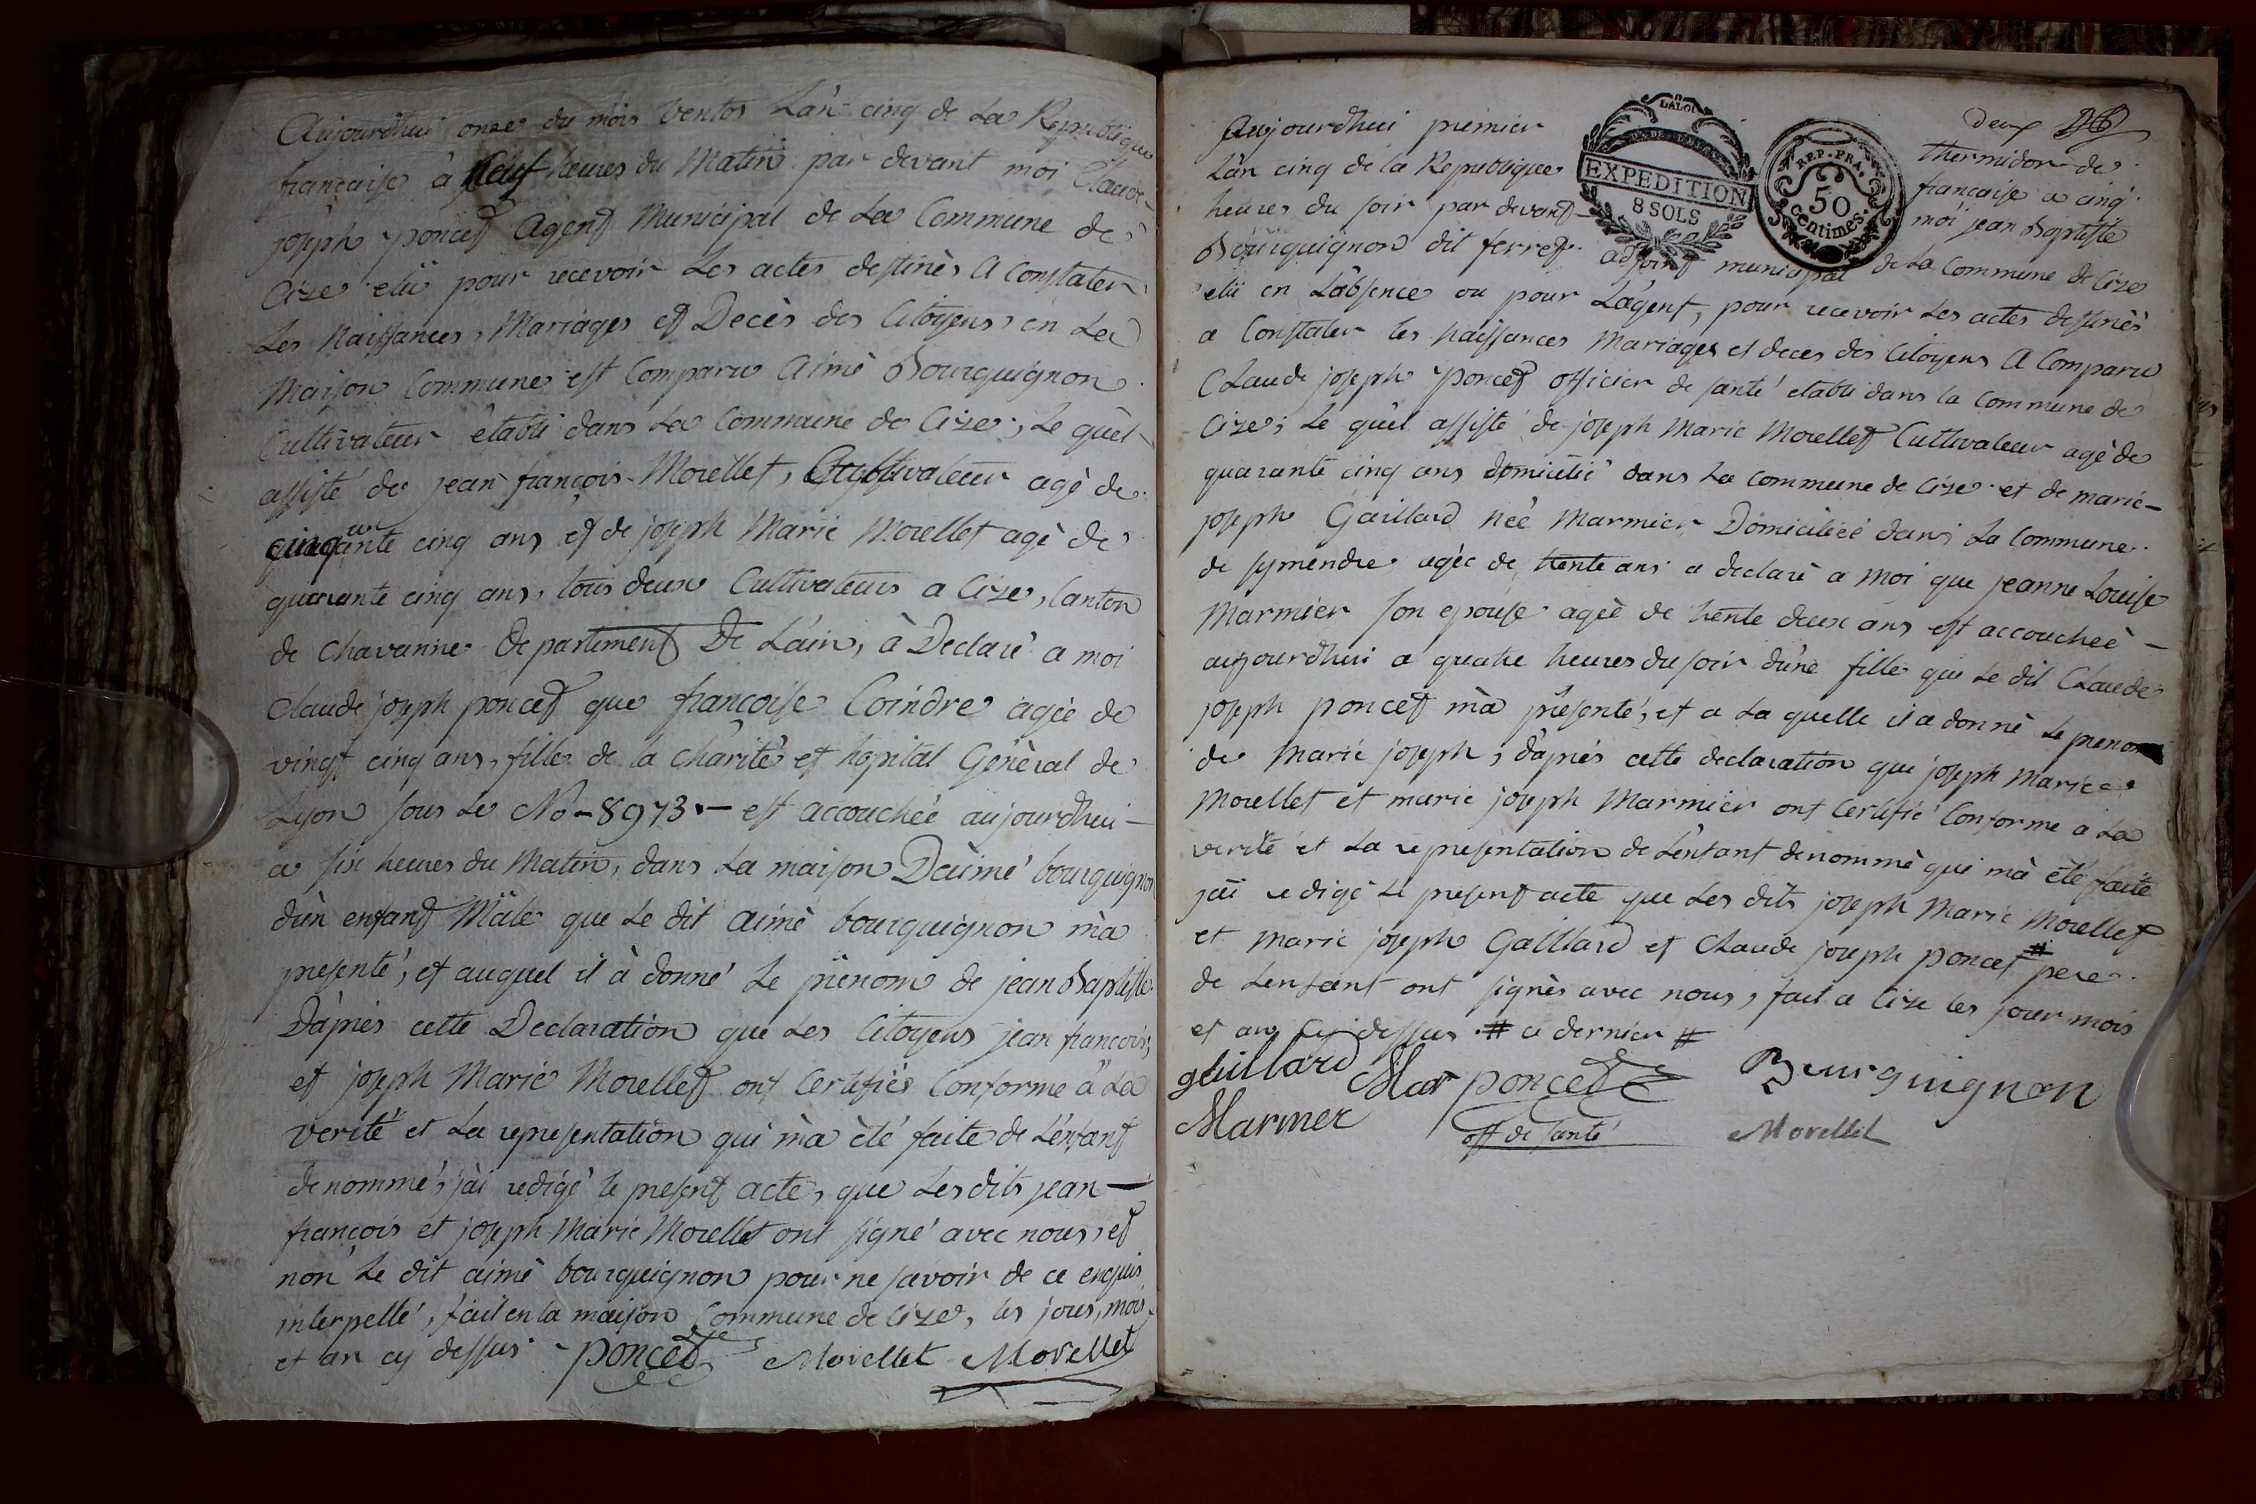 Aujourdhui onze du mois Ventos L'an cinq de La Republique
française à Neuf heures du Matin par devant moi Claude-
joseph poncet Agent Municipal de La Commune de
Cize elü pour recevoir Les actes destinès A Constater
Les Naissances, Mariages et Decès des Citoyens, en La
Maison Commune est Comparu Aimè Bourquignon
Cultivateur établi dans La Commune de Cize, Le quèl
assisté de jean françois Morellet, Cultivateur agè de
cinquante cinq ans et de joseph Marie Morellet agè de
quarante cinq ans, tous deux Cultivateurs a Cize, Canton
de Chavanne Departement De L'ain, à Declaré a moi
Claude joseph poncet que françoise Coindre agée de
vingt cinq ans, fille de la charité et hopital Général de
Lyon sous Le No - 8973 - est accouchée aujourdhui -
a six heures du Matin, dans La maison D'aimé bourquignon
d'un enfant Mâle que Le dit aimè bourquignon m'a
presenté, et auquel il à donné Le prénom de jean Baptiste
D'apriés cette Declaration que Les Citoyens jean françois,
et joseph Marie Morellet ont Certifiés Conforme à La
verité et La representation qui m'a été faite de L'enfant
denommé, j'ai redigé le present acte, que Les dits jean -
françois et joseph Marie Morellet ont signé avec nous, et
non Le dit aimè bourquignon pour ne savoir de ce enquis
interpellé, fait en la maison Commune de Cize, les jour, mois
et an cy dessus. poncet Morellet Morellet
Deux
Aujourdhui premier thermidor de
L'an cinq de la Republique française a cinq
heures du soir par devant moi jean Baptiste
EXPEDITION
8 SOLS
REP. FRA.
50
centimes.
Bourquignon dit ferret adjoint municipal de La Commune de Cize
elü en L'absence ou pour L'agent, pour recevoir Les actes destinés
a Constater les naissances Mariages et deces des Citoyens A Comparu
Claude joseph Poncet officier de santé etabli dans la Commune de
Cize; Le quèl assisté de joseph Marie Morellet Cultivateur agè de
quarante cinq ans domicilié dans La Commune de Cize et de marie-
joseph Gaillard Née Marmier Domiciliée dans La Commune
de symendre agée de trente ans a declaré a moi que jeanne Louise
Marmier son epouse agèe de trente deux ans est accouchée -
aujourdhui a quatre heures du soir d'une fille que Le dit Claude
joseph poncet m'a présenté, et a La quelle il a donné Le prenom
de Marie joseph, d'aprés cette declaration que joseph Marie
Morellet et marie joseph Marmier ont Certifié Conforme à La
verité et La representation de L'enfant denommè qui m'a été faite
j'ai redigé Le present acte que Les dits joseph Marie Morellet
et Marie joseph Gaillard et Claude joseph poncet # pere
de L'enfant ont signès avec nous, fait a Cize les jour mois
et an cy dessus. # ce dernier #
gaillard Mar poncet Bourguignon
Marmer off de santé Morellet